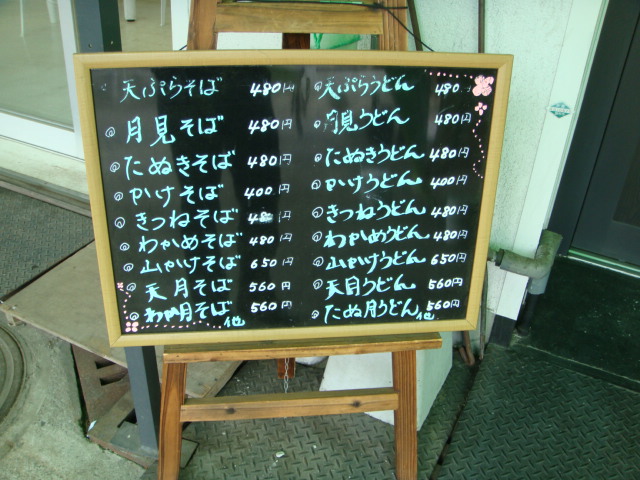 天ぷらそば 480円
◎月見そば 480円
◎たぬきそば 480円
◎かけそば 400円
◎きつねそば 480円
◎わかめそば 480円
◎山かけそば 650円
◎天月そば 560円
◎わか月そば 560円
他
◎天ぷらうどん 480円
◎月見うどん 480円
◎たぬきうどん 480円
◎かけうどん 400円
◎きつねうどん 480円
◎わかめうどん 480円
◎山かけうどん 650円
◎天月うどん 560円
◎たぬ月うどん 560円
他